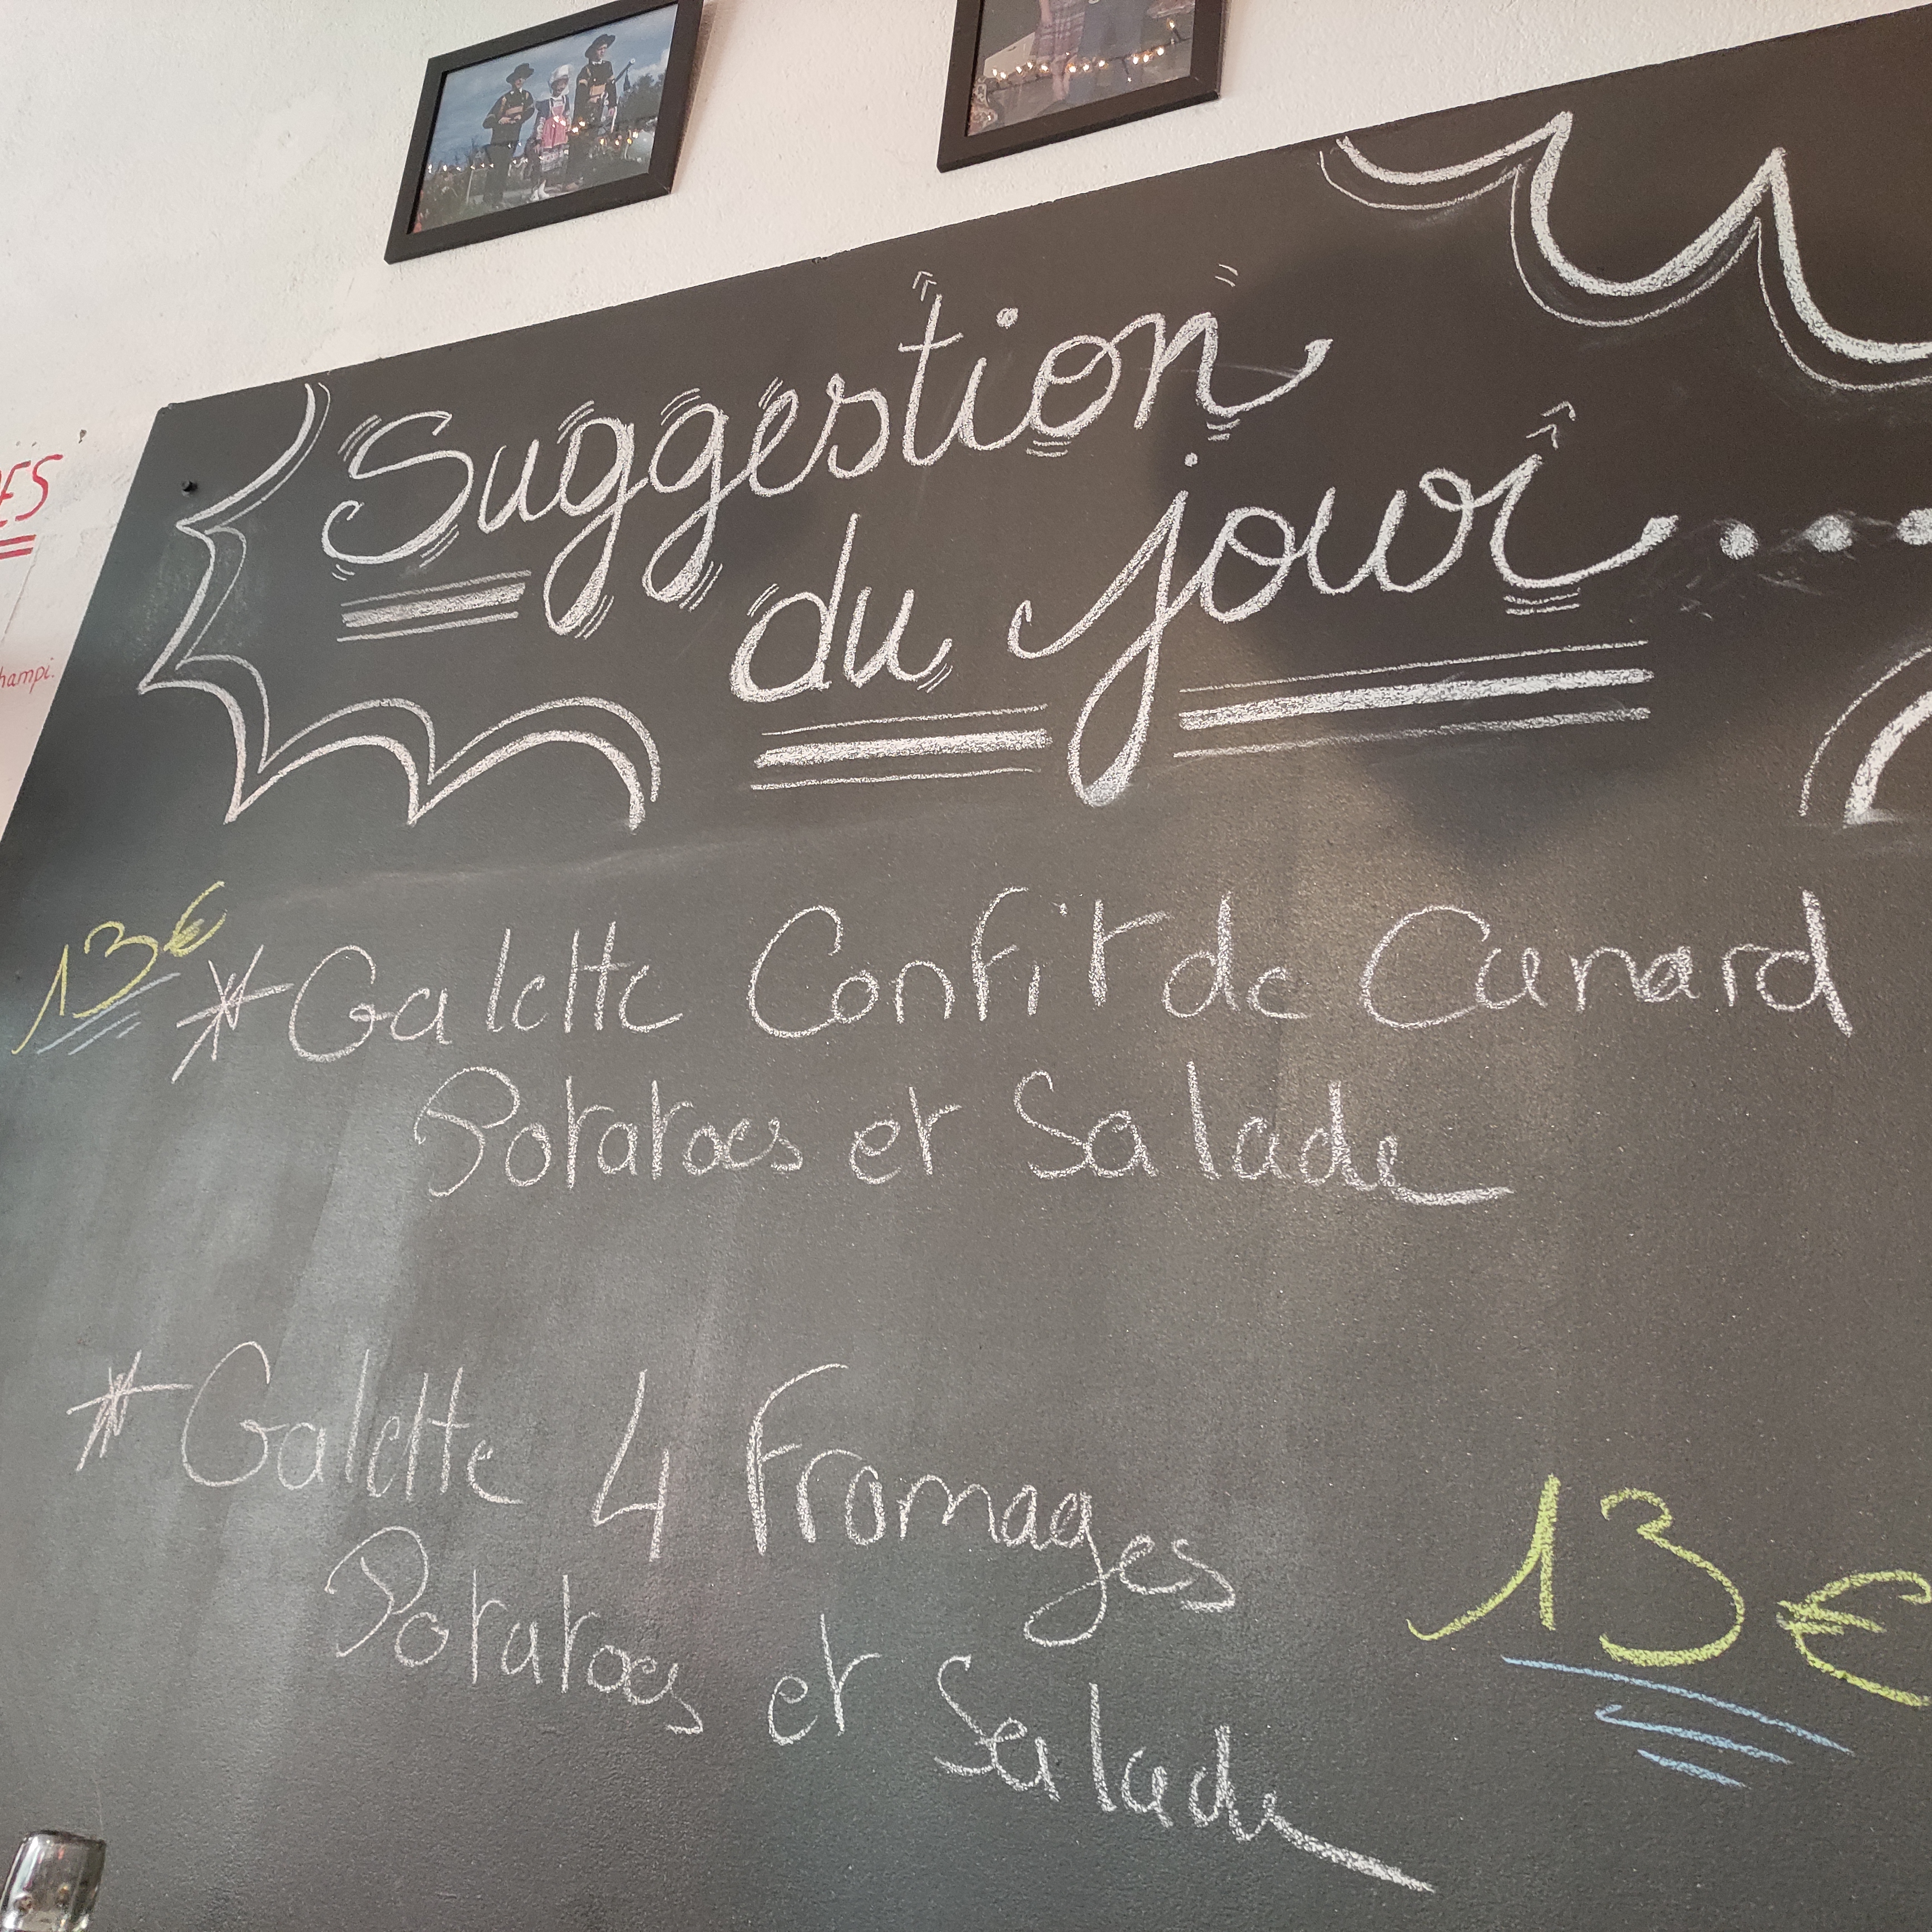 Suggestion
du jour...
13€
* Galette Confit de Canard
Potatoes et Salade
* Galette 4 Fromages
Potatoes et Salade
13€